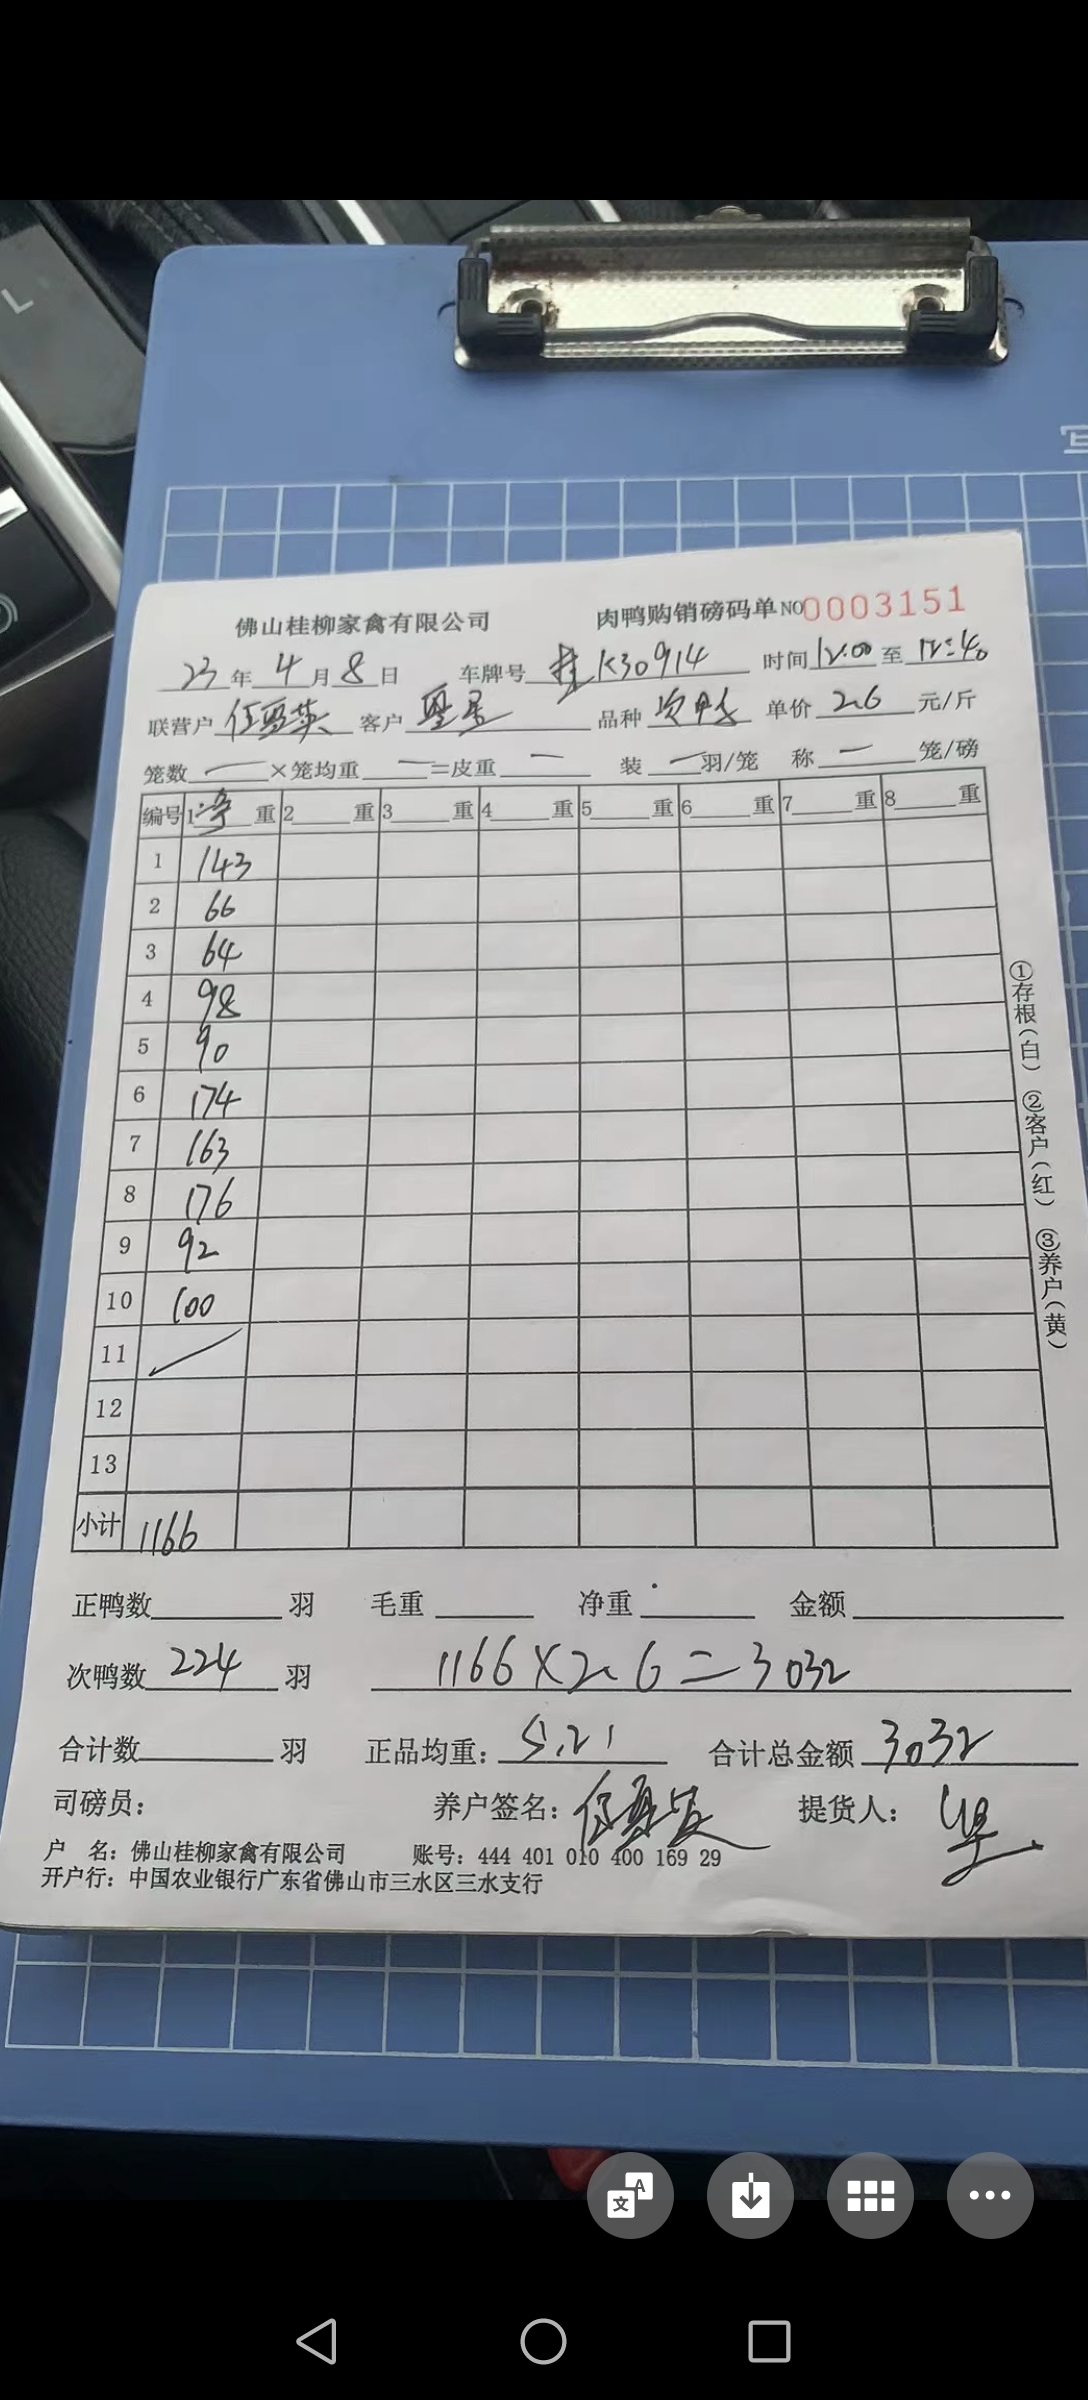 L
写
佛山桂柳家禽有限公司 肉鸭购销磅码单 NO 0003151
23 年 4 月 8 日 车牌号 桂K30914 时间 12:00 至 12:40
联营户 客户 品种 次鸭 单价 2.6 元/斤
笼数 一 ×笼均重 一 =皮重 一 装 一 羽/笼 称 一 笼/磅
编号 1 净 重 2 重 3 重 4 重 5 重 6 重 7 重 8 重
1 143
2 66
3 64
4 98
5 90
6 174
7 163
8 176
9 92
10 100
11
12
13
小计 1166
①存根(白) ②客户(红) ③养户(黄)
正鸭数 羽 毛重 净重 金额
次鸭数 224 羽 1166×2.6=3032
合计数 羽 正品均重: 5.21 合计总金额 3032
司磅员: 养户签名: 提货人:
户 名: 佛山桂柳家禽有限公司 账号: 444 401 010 400 169 29
开户行: 中国农业银行广东省佛山市三水区三水支行